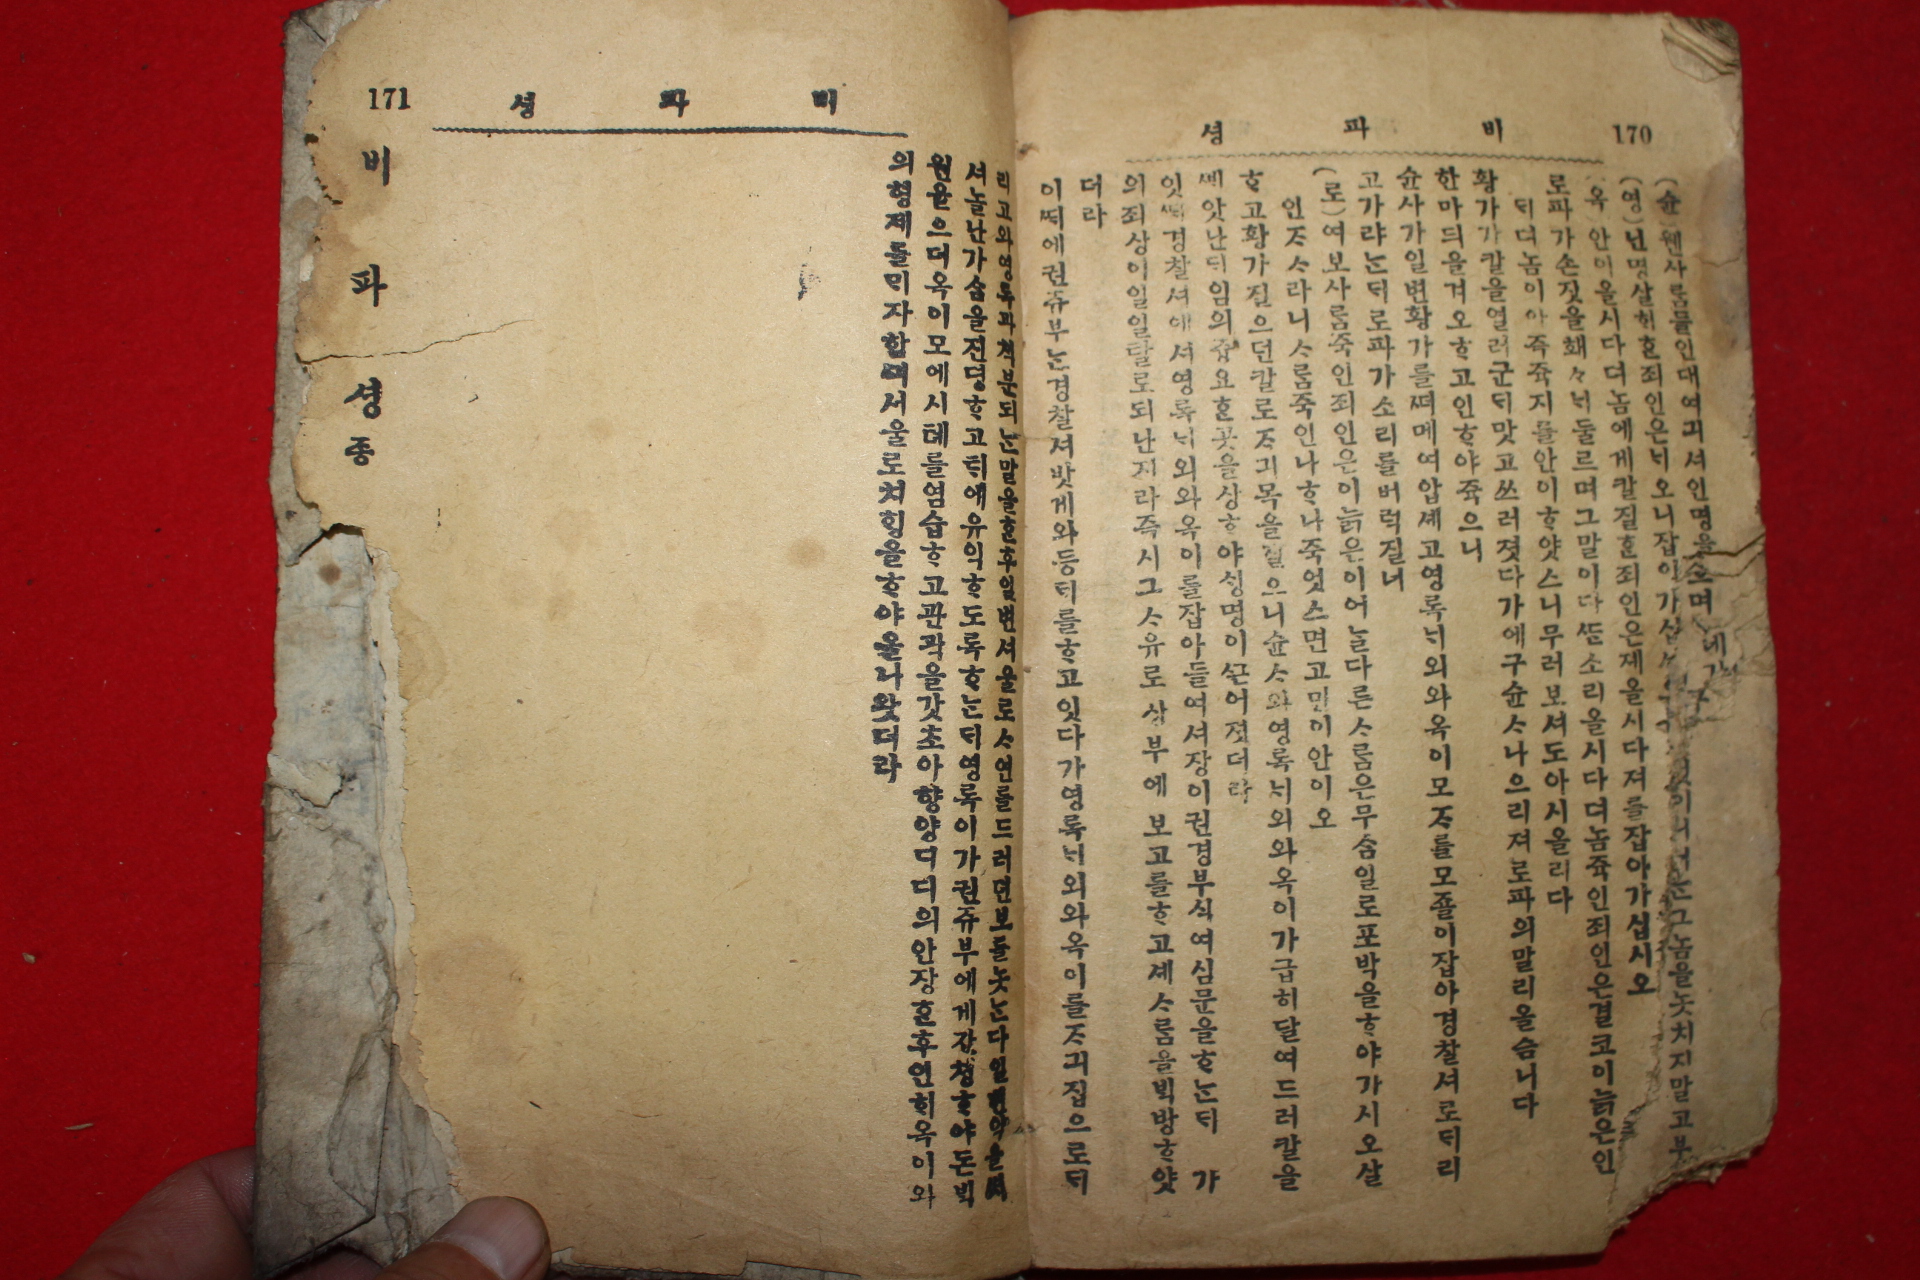 170 비 파 셩
(슌)웬사ᄅᆞᆷ들인대여긔셔인명을 며 네가
(영)넌명살ᄒᆡᄒᆞᆫ죄인은ᄂᆡ오니잡아가십 그놈을놋치지말고부
옥 안이올시다뎌놈에게칼질ᄒᆞᆫ죄인은졔올시다져를잡아가십시오
로파가손짓을홰ᄉᆞᄂᆡ둘르며그말이다 소리올시다뎌놈쥭인죄인은결코이늙은인
ᄃᆡ뎌놈이아쥭쥭지를안이ᄒᆞ얏스니무러보셔도아시올리다
황가가칼을열러군ᄃᆡ맛고쓰러졋다가에구슌ᄉᆞ나으리져로파의말리올슴니다
한마듸을겨오ᄒᆞ고인ᄒᆞ야쥭으니
슌사가일변황가를ᄯᅥ메여압셰고영록ᄂᆡ외와옥이모ᄌᆞ를모죨이잡아경찰셔로ᄃᆡ리
고가랴는ᄃᆡ로파가소리를버럭질너
(로)여보사ᄅᆞᆷ죽인죄인은이늙은이어늘다른ᄉᆞᄅᆞᆷ은무슴일로포박을ᄒᆞ야가시오살
인ᄌᆞᄉᆞ라니ᄉᆞᄅᆞᆷ죽인나ᄒᆞ나죽엇스면고만이안이오
ᄒᆞ고황가질으던칼로ᄌᆞ긔목을질으니슌ᄉᆞ와영록ᄂᆡ외와옥이가급히달여드러칼을
ᄲᅦ앗난ᄃᆡ임의즁요ᄒᆞᆫ곳을상ᄒᆞ야ᄉᆡᆼ명이ᄭᅳᆫ어졋더라
잇ᄯᆡ경찰셔에셔영록ᄂᆡ외와옥이를잡아들여셔장이권경부식여심문을ᄒᆞᄂᆞᆫᄃᆡ 가
의죄상이일일탈로되난지라즉시그ᄉᆞ유로상부에 보고를ᄒᆞ고셰ᄉᆞᄅᆞᆷ을ᄇᆡᆨ방ᄒᆞ얏
더라
이ᄯᅢ에권쥬부는경찰셔밧게와등ᄃᆡ를ᄒᆞ고잇다가영록ᄂᆡ외와옥이를ᄌᆞ긔집으로ᄃᆡ
171 비 파 셩
리고와영록과쳑분되ᄂᆞᆫ말을ᄒᆞᆫ후일변셔울로ᄉᆞ연를드러뎐보를놋ᄂᆞᆫ다일변약을
셔놀난가슴을진뎡ᄒᆞ고ᄃᆡᄋᆡ유의ᄒᆞ도록ᄒᆞᄂᆞᆫᄃᆡ영록이가권쥬부에게간쳥ᄒᆞ야돈ᄇᆡᆨ
원을으더옥이모에시톄를염습ᄒᆞ고관곽을갓초아향양디디의안장ᄒᆞᆫ후인ᄒᆡ옥이와
의형뎨를ᄆᆡ자함ᄭᅴ서울로치ᄒᆡᆼ을ᄒᆞ야올나왓더라
비 파 셩 죵